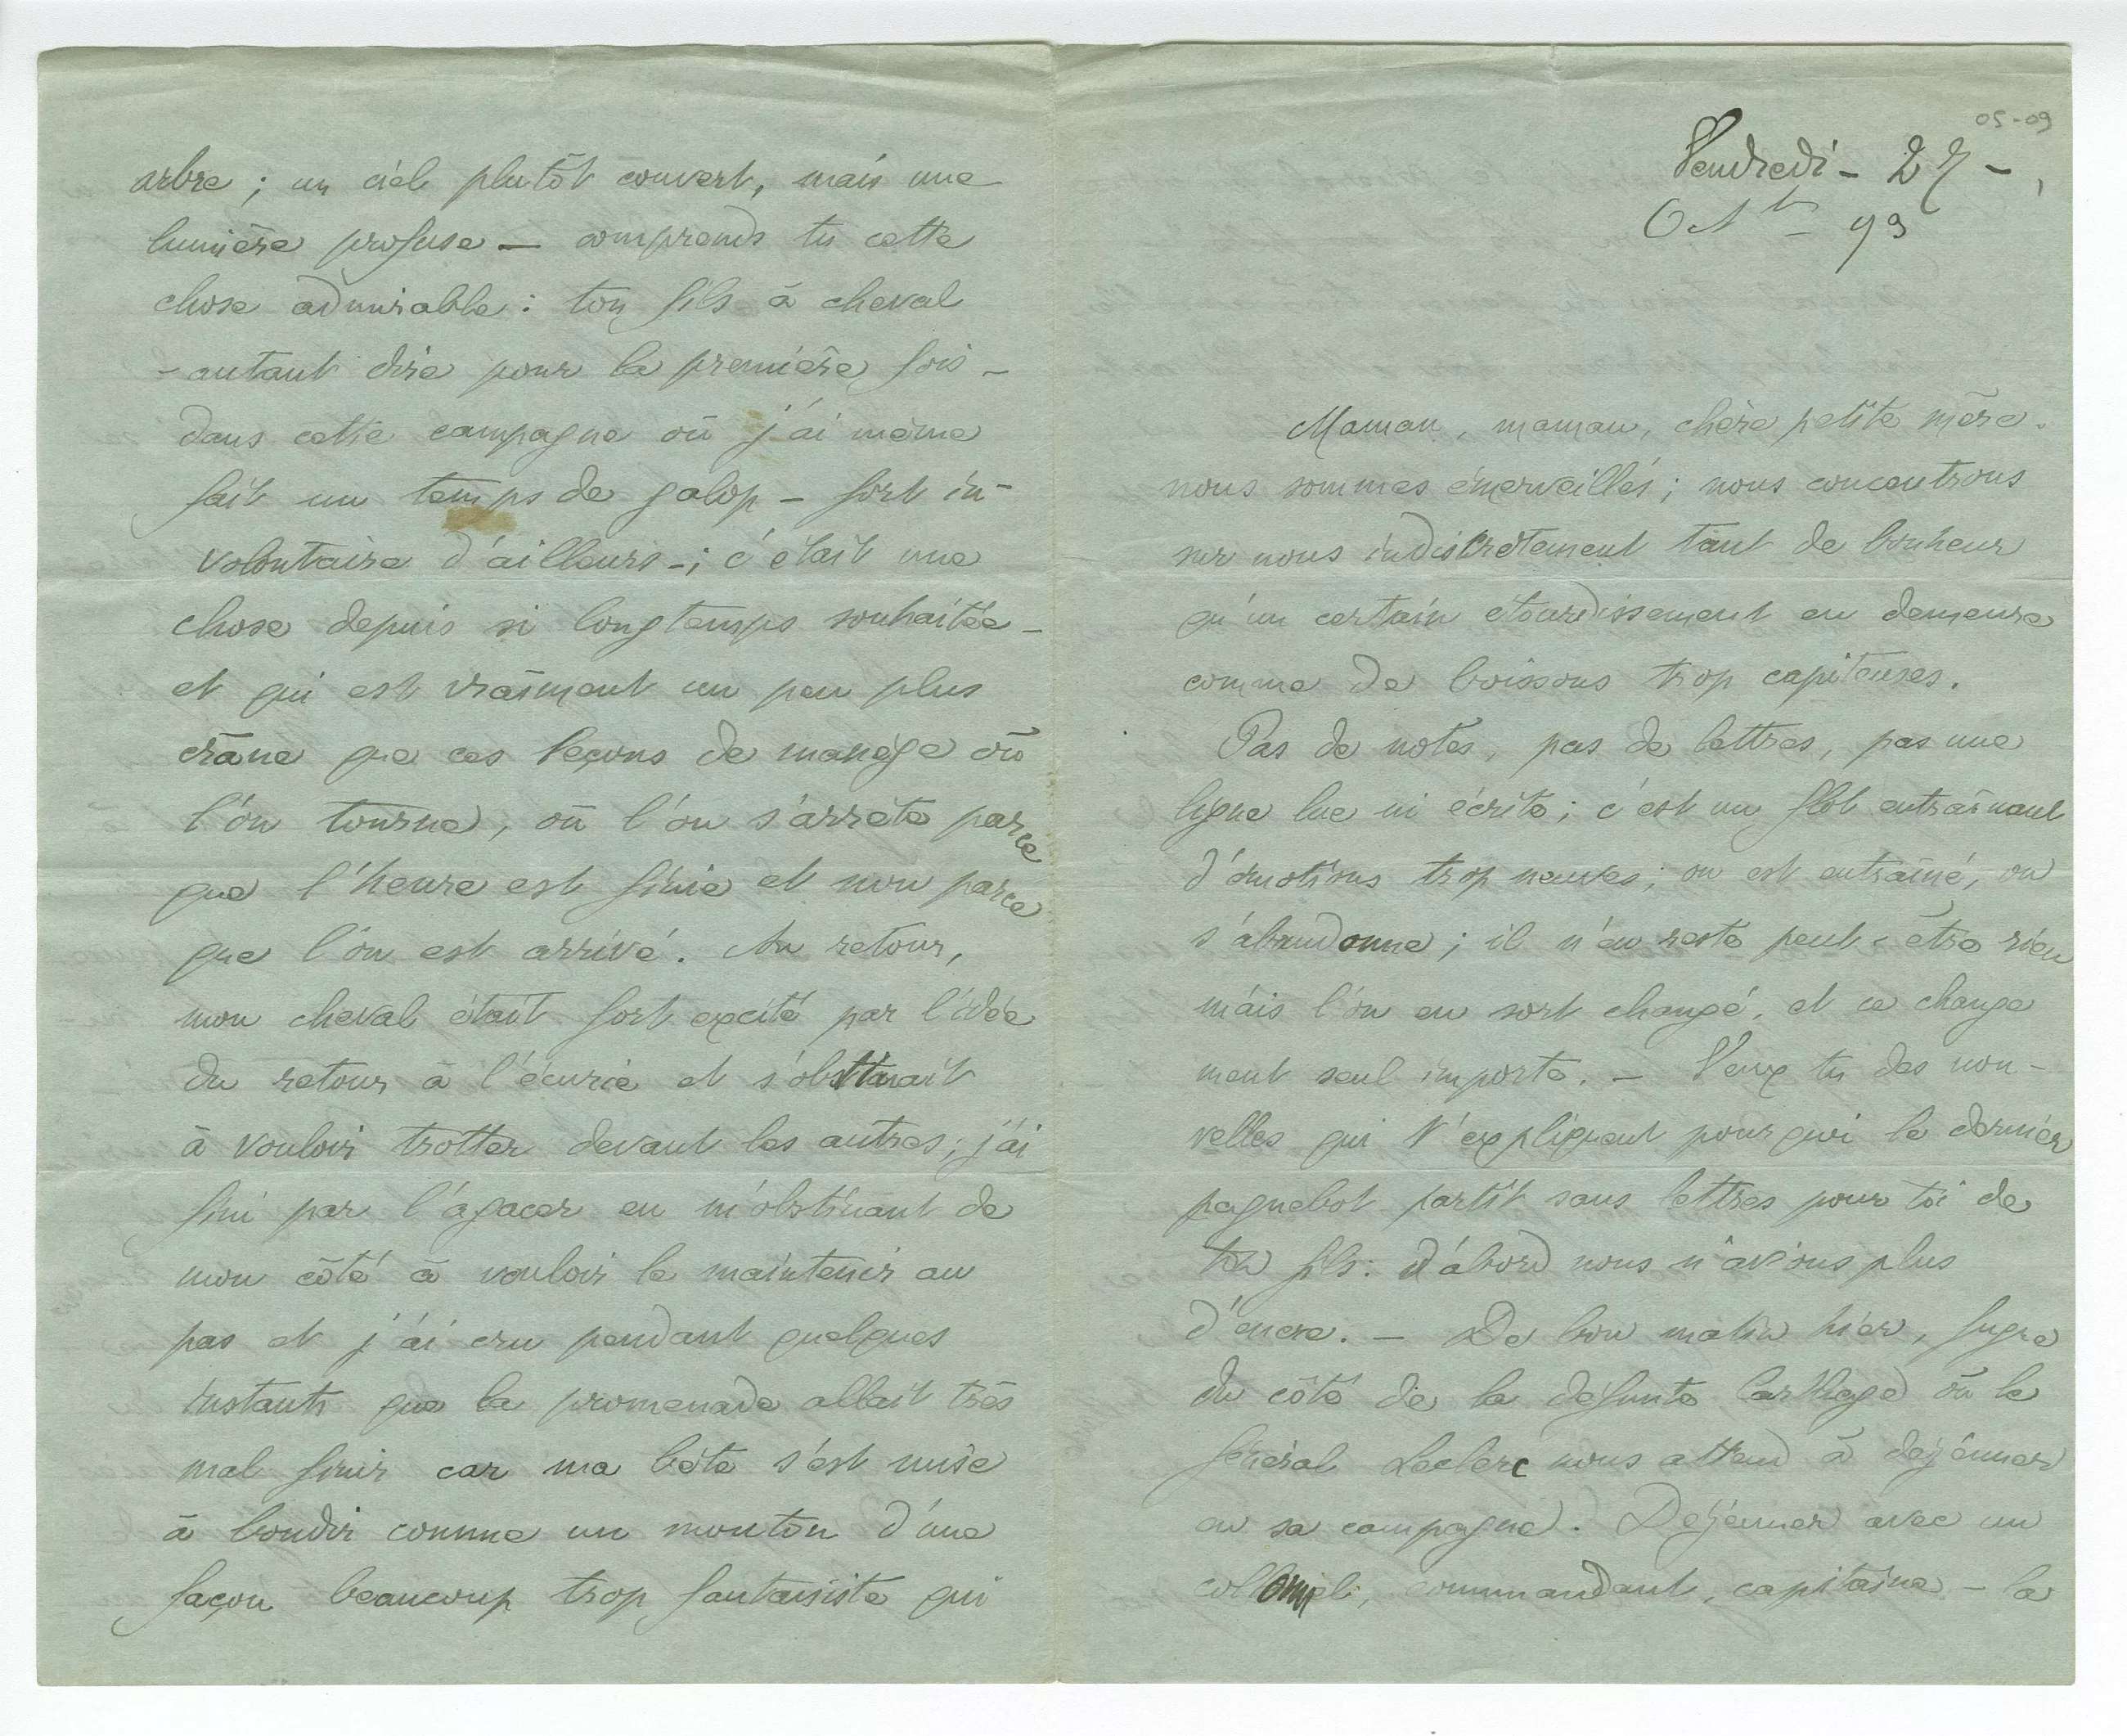 Vendredi - 27 -
Oct^bre - 93
Maman, maman, chère petite mère.
nous sommes émerveillés ; nous concentrons
sur nous indiscrètement tant de bonheur
qu'un certain étourdissement en demeure
comme de boissons trop capiteuses.
Pas de notes, pas de lettres, pas une
ligne lue ni écrite ; c'est un flot entraînant
d'émotions trop neuves ; on est entraîné, on
s'abandonne ; il n'en reste peut-être rien
mais l'on en sort changé, et ce change
ment seul importe. — Veux tu des nou-
velles qui t'expliquent pourquoi le dernier
paquebot partit sans lettres pour toi de
ton fils : d'abord nous n'avions plus
d'encre. — De bon matin hier, fugue
du côté de la défunte Carthage où le
général Leclerc nous attend à déjeuner
en sa campagne. Déjeuner avec un
collonel, commandant, capitaine - la
arbre ; un ciel plutôt couvert, mais une
lumière profuse — comprends tu cette
chose admirable : ton fils à cheval
- autant dire pour la première fois -
dans cette campagne où j'ai même
fait un temps de galop - fort in-
volontaire d'ailleurs - ; c'était une
chose depuis si longtemps souhaitée -
et qui est vraiment un peu plus
crâne que ces leçons de manège où
l'on tourne, où l'on s'arrête parce
que l'heure est finie et non parce
que l'on est arrivé. Au retour,
mon cheval était fort excité par l'idée
du retour à l'écurie et s'obstinait
à vouloir trotter devant les autres ; j'ai
fini par l'agacer en m'obstinant de
mon côté à vouloir le maintenir au
pas et j'ai cru pendant quelques
instants que la promenade allait très
mal finir car ma bête s'est mise
à bondir comme un mouton d'une
façon beaucoup trop fantaisiste qui